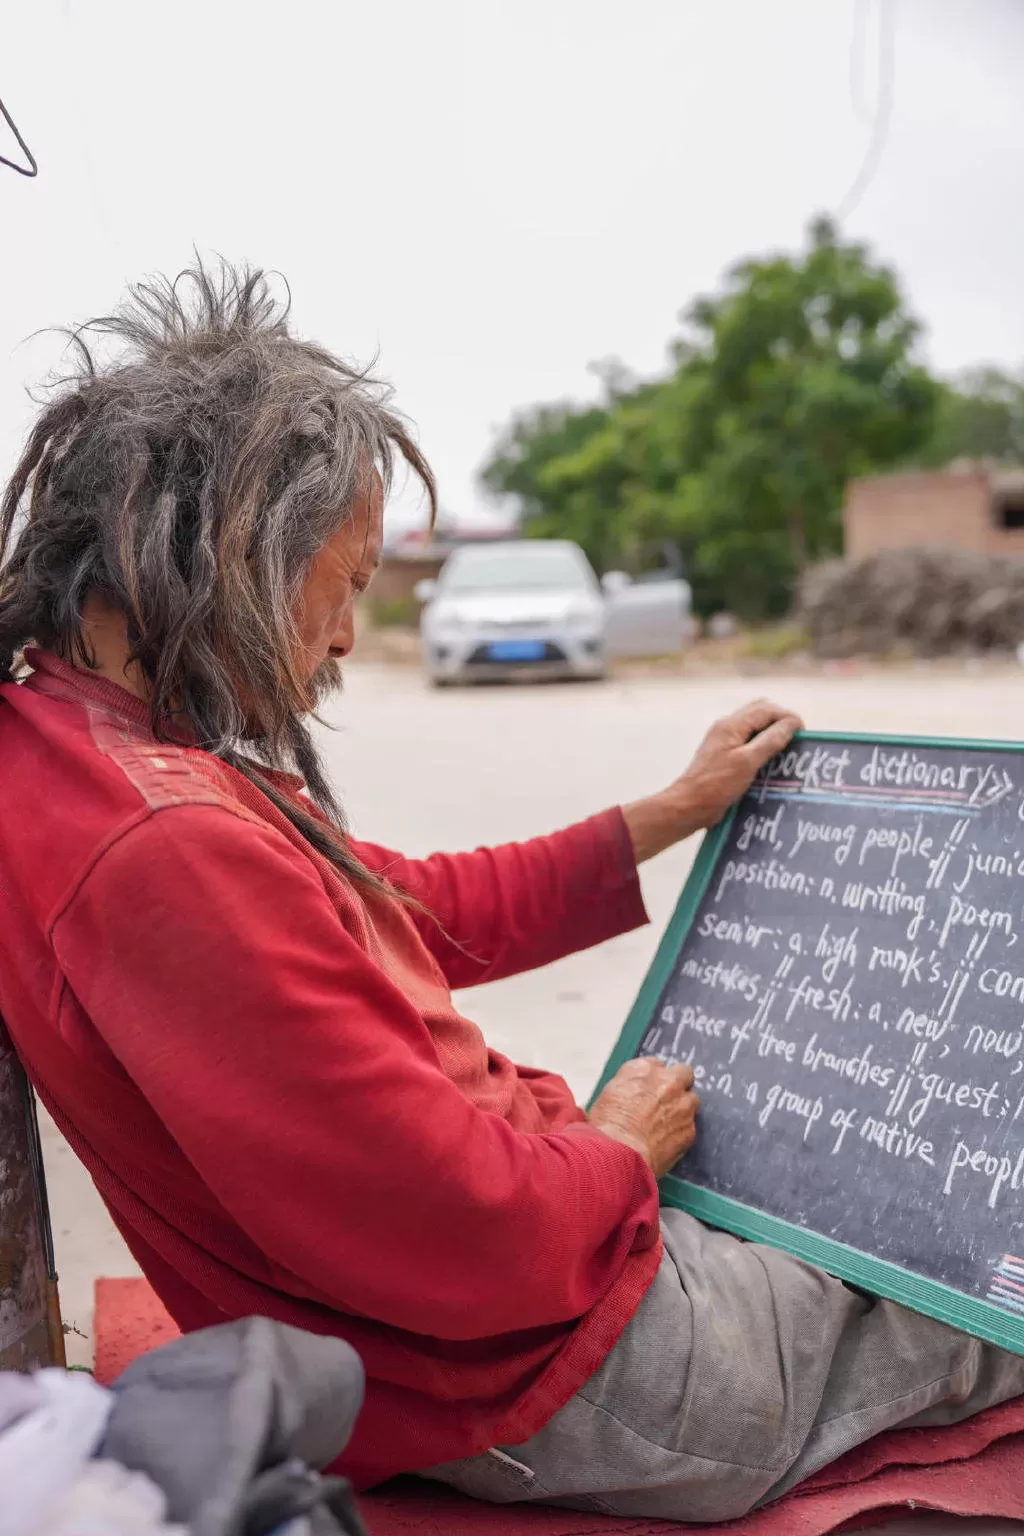 pocket dictionary》
girl, young people,∥ juni
position: n. writting, poem,
senior: a. high rank's.∥ con
mistakes,∥ fresh: a. new, now,
a piece of tree branches,∥ guest:
: n. a group of native peopl